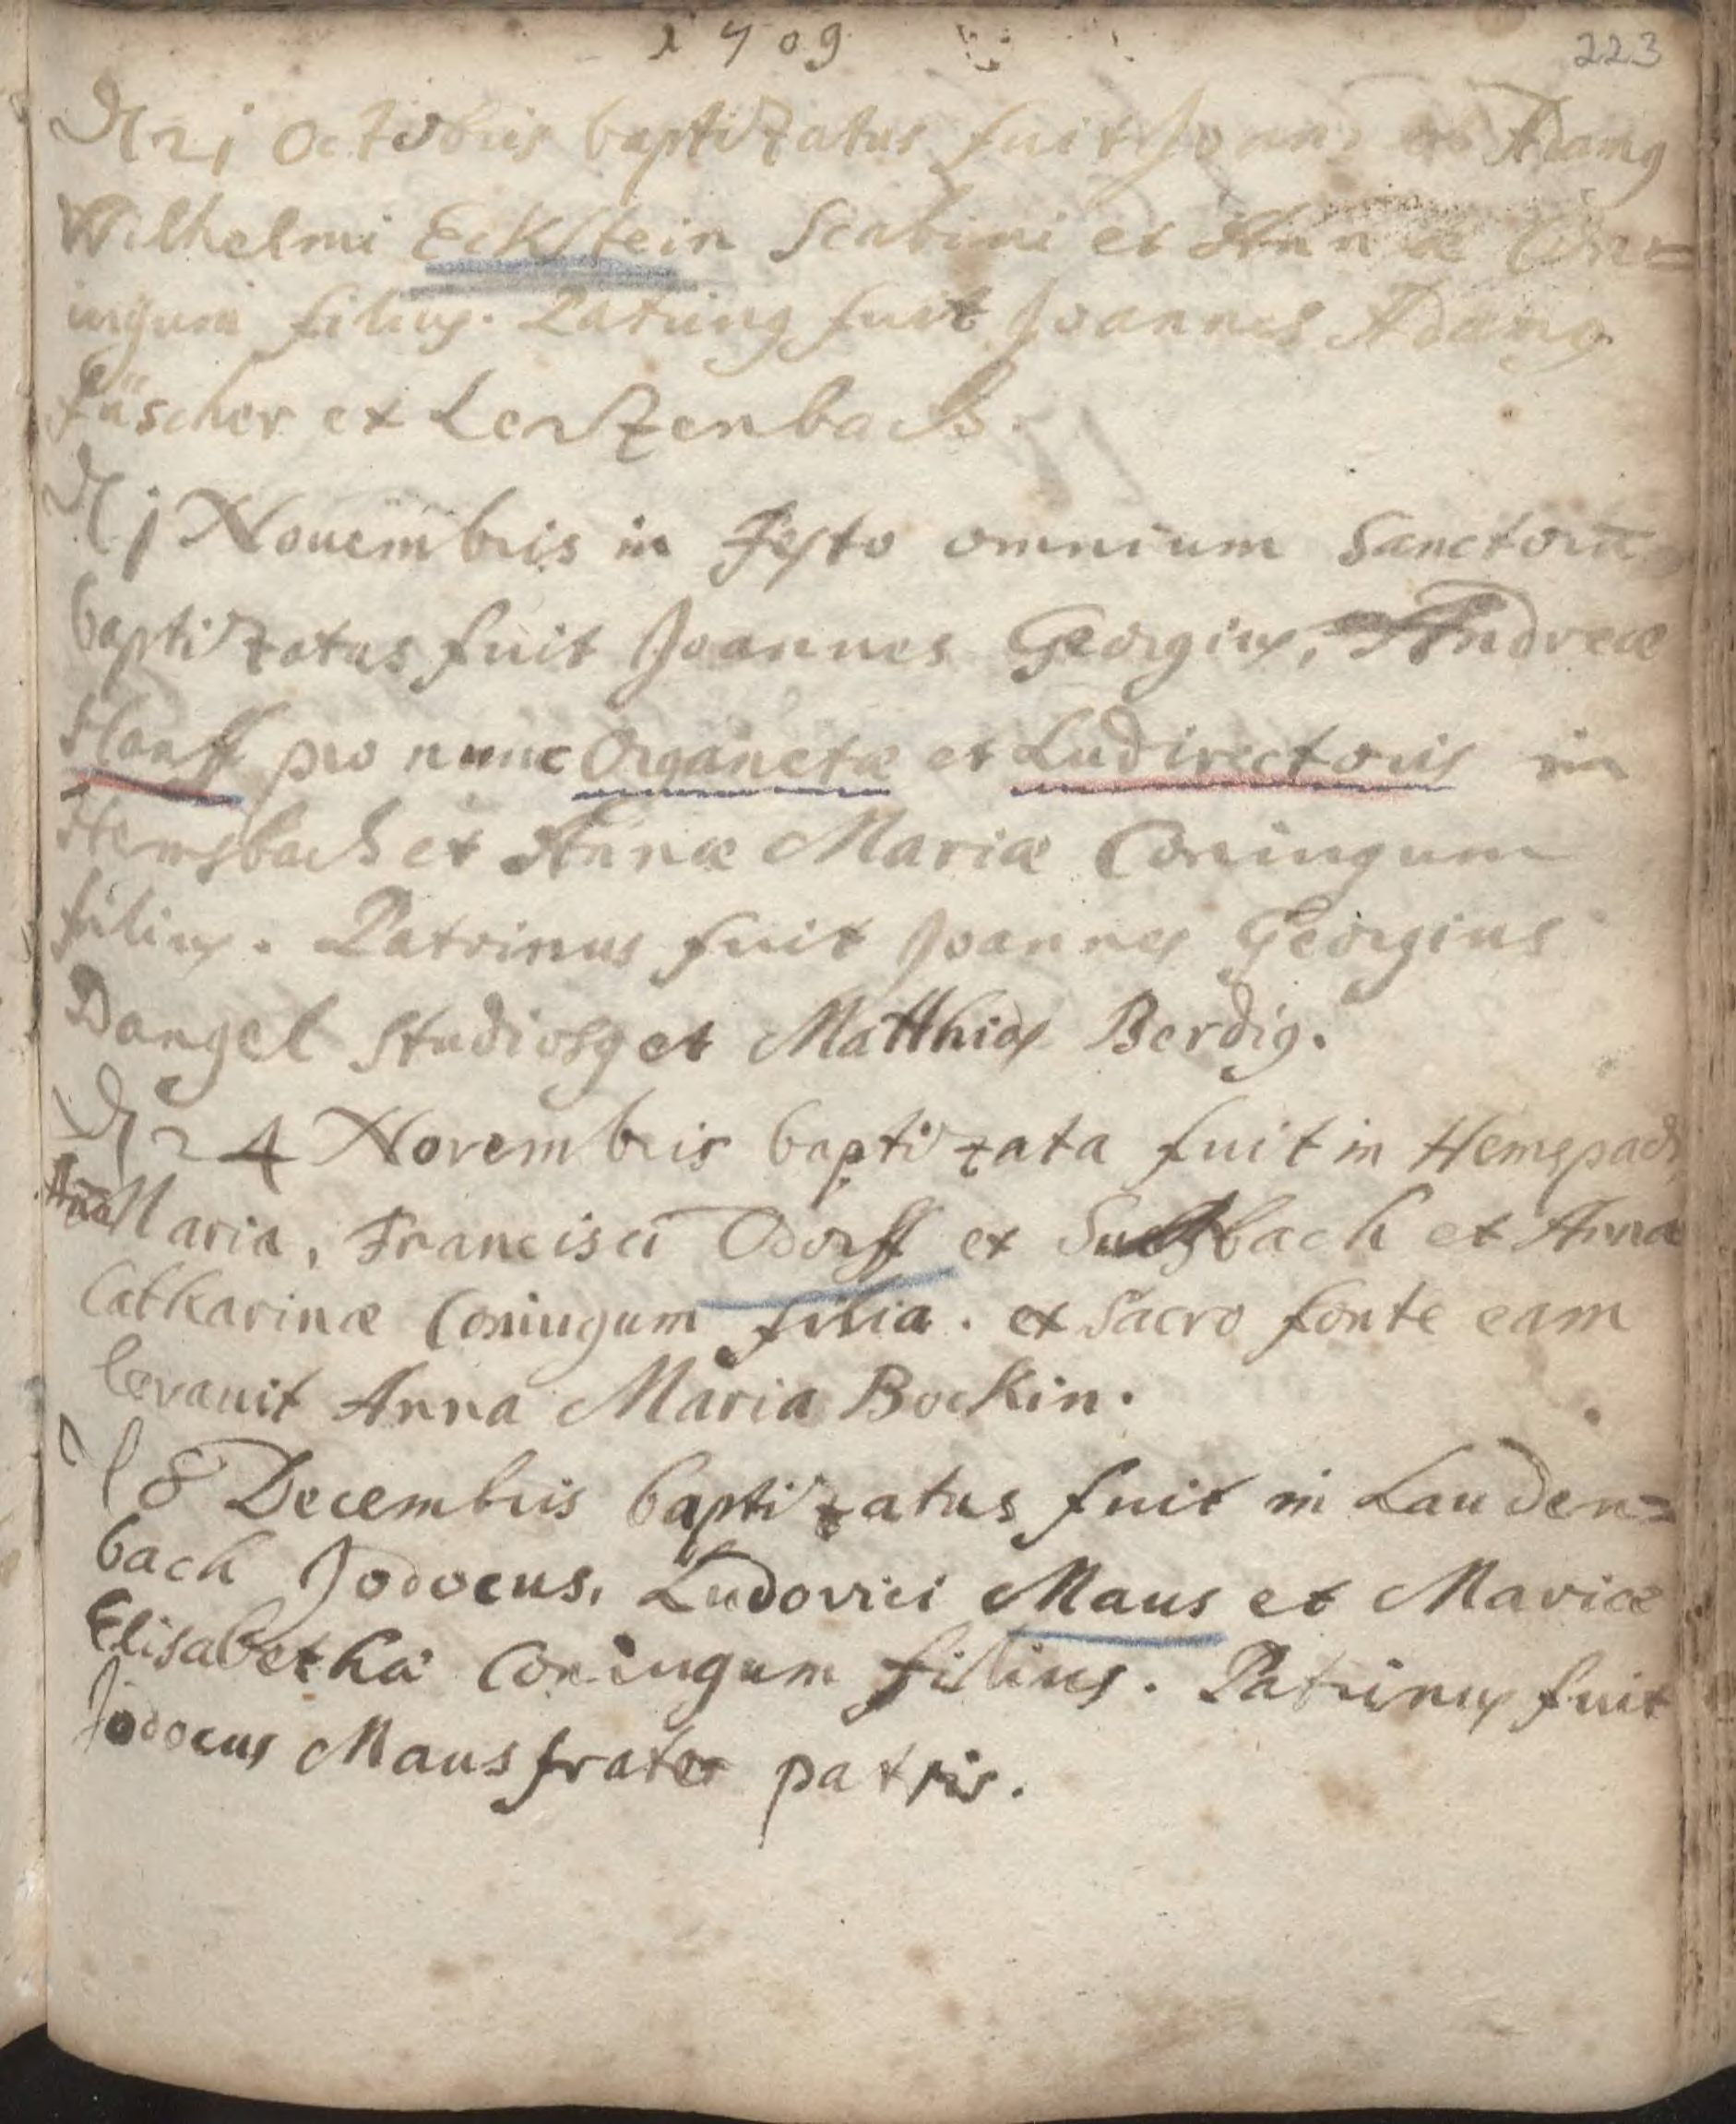 1709
223
21 Octobris baptizatus fuit Joannes Adamg
Wilhelmi Eckstein Scabini et Annæ Con=
iugum filius. Patring fuit Joannes Adamg
Füscher ex Lertzenbach.
1 Nouembris in Festo omnium Sanctorū
baptizatus fuit Joannes Georgius, Andreæ
Hanff pro nunc Organetæ et Ludirectoris in
Hemsbach et Annæ Mariæ Coniugum
filius. Patrinus fuit Joannes Georgius
Dangel Studiosg et Matthias Berdig.
24 Novembris baptizata fuit in Hemspach
Aña Maria, Francisci Odorff ex Sultzbach et Annæ
Catharinæ Coniugum filia. ex Sacro fonte eam
levauit Anna Maria Bockin.
8 Decembris baptizatus fuit in Lauden=
bach Jodocus, Ludovici Maus et Mariæ
Elisabetha Coniugum filius. Patrinus fuit
Jodocus Maus frater patris.